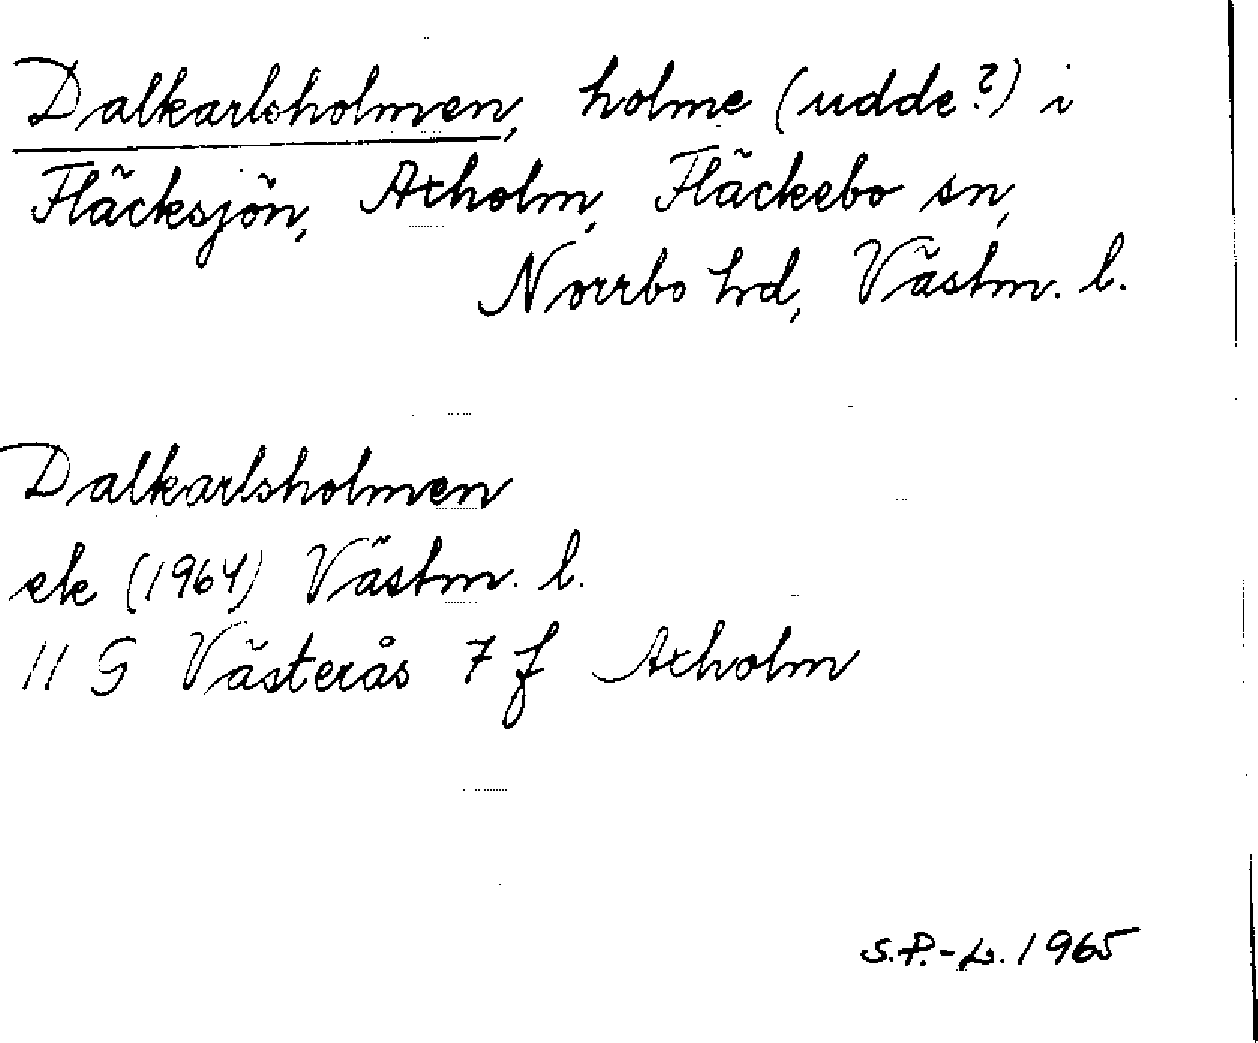 Dalkarlsholmen, holme (udde?) i
Fläcksjön, Axholm, Fläckebo sn,
Norrbo hd, Västm. l.
Dalkarlsholmen
ek (1964) Västm. l.
11 G Västerås 7 f Axholm
S.P.-L. 1965